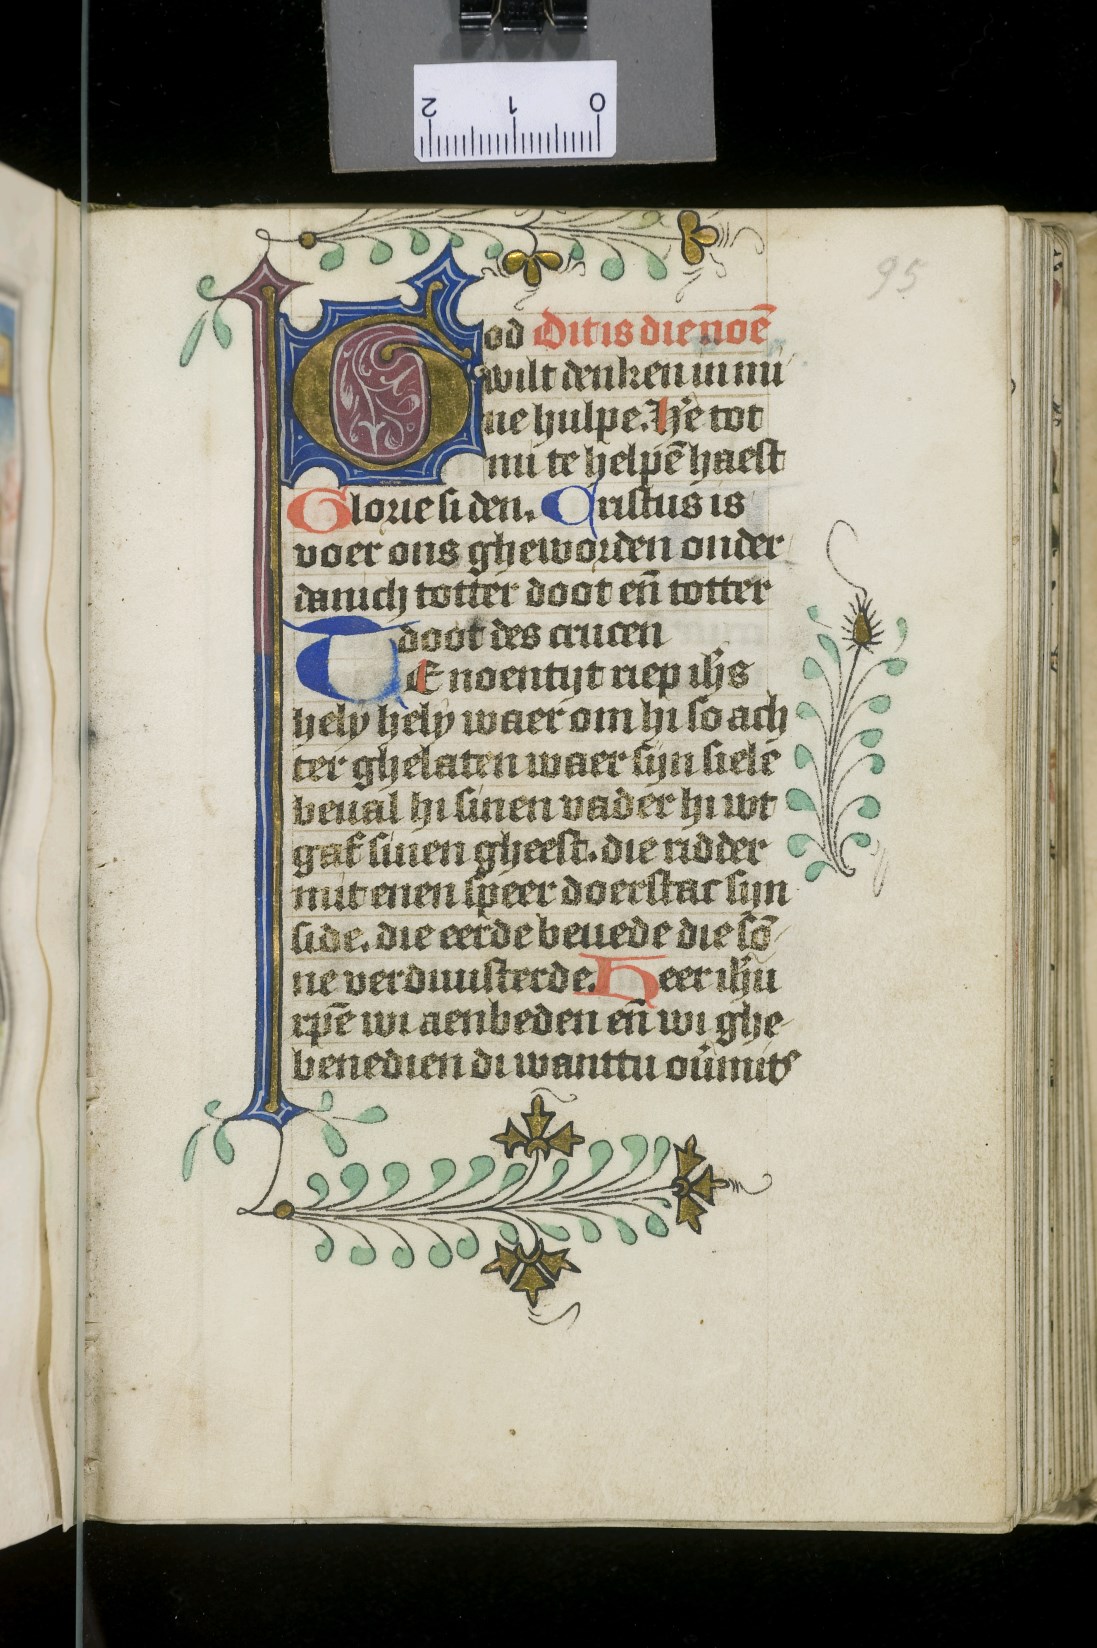 2 1 0
95
God Dit is die noē
wilt denken in mi
ne hulpe. He tot
mi te helpē haest
Glorie si den. Cristus is
voer ons gheworden onder
danich totter doot eñ totter
doot des crucen
TE noentijt riep ihs
hely hely waer om hi so ach
ter ghelaten waer sijn sielē
beual hi sinen vader hi wt
gaf sinen gheest. die ridder
mit enen speer doerstac sijn
side. die eerde beuede die sō
ne verduusterde. Heer ihu
xpē wi aenbeden eñ wi ghe
benedien di wanttu oūmits